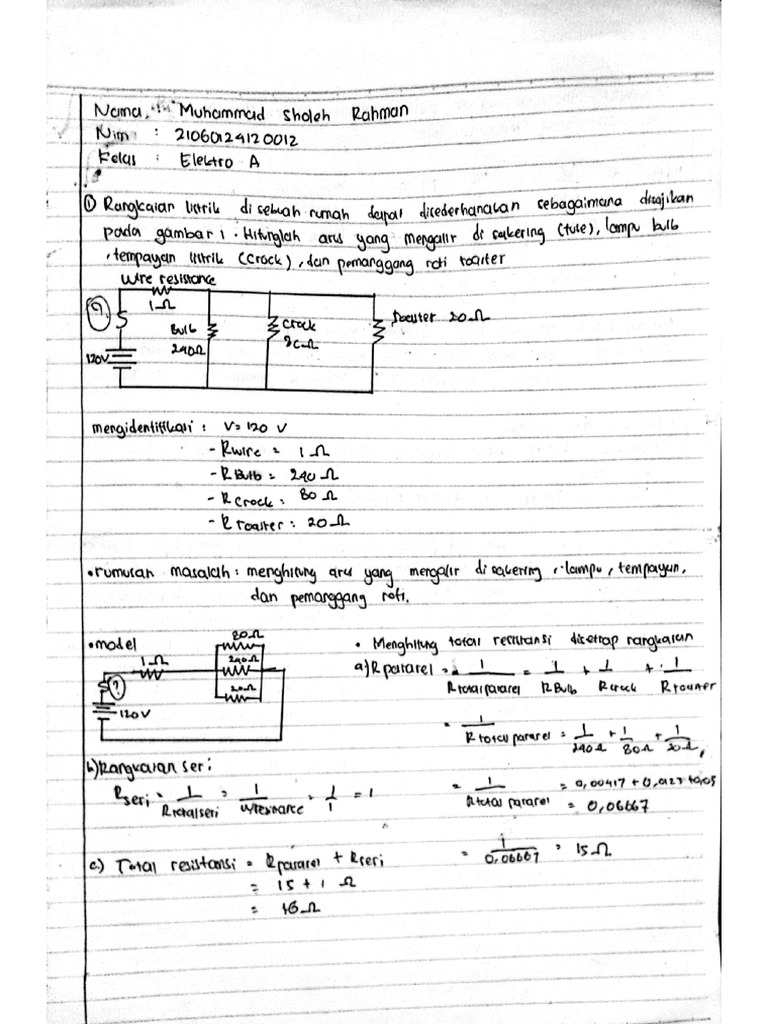 Nama : Muhammad Sholeh Rahman
Nim : 21060124120012
Kelas : Elektro A
① Rangkaian listrik di sebuah rumah dapat disederhanakan sebagaimana disajikan
pada gambar 1. Hitunglah arus yang mengalir di sakering (fuse), lampu bulb
, tempayan listrik (crock), dan pemanggang roti toaster
Wire resistance
1Ω
?
Bulb
240Ω
Crock
80Ω
Toaster 20Ω
120V
mengidentifikasi : V = 120 V
- Rwire = 1Ω
- RBulb = 240Ω
- RCrock = 80Ω
- Rtoaster : 20Ω
• rumusan masalah : menghitung arus yang mengalir di sakering, lampu, tempayan,
dan pemanggang roti.
• model
80Ω
1Ω
240Ω
20Ω
?
120V
• Menghitung total resistansi disetiap rangkaian
a) R pararel = 1/R total pararel = 1/R Bulb + 1/R Crock + 1/R toaster
= 1/R total pararel = 1/240Ω + 1/80Ω + 1/20Ω
= 1/R total pararel = 0,00417 + 0,0125 + 0,05
= 0,06667
= 1/0,06667 = 15Ω
b) Rangkaian seri :
Rseri = 1/R total seri = 1/wresistance = 1/1 = 1
c) Total resistansi = Rpararel + Rseri
= 15 + 1 Ω
= 16Ω